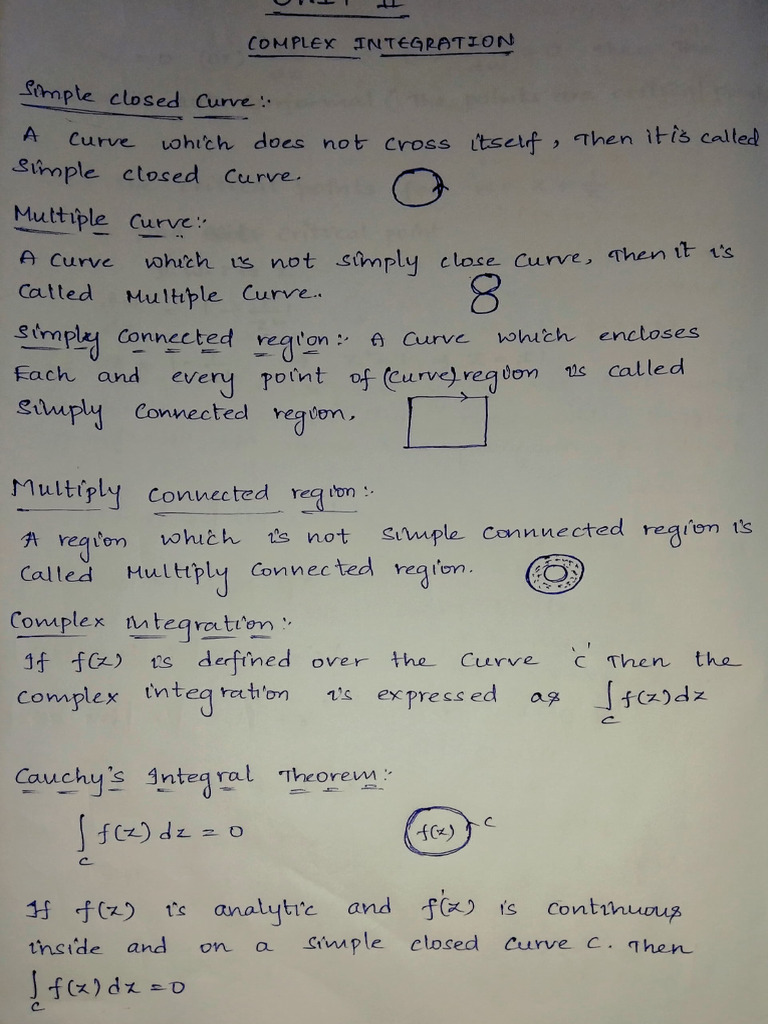 UNIT II
COMPLEX INTEGRATION
Simple closed Curve:-
A Curve which does not cross itself, Then it is called
Simple closed Curve.
Multiple Curve:-
A Curve which is not simply close curve, Then it is
Called Multiple Curve..
Simply Connected region:- A Curve which encloses
Each and every point of (curve) region is called
Simply Connected region.
Multiply connected region:-
A region which is not simple connnected region is
Called Multiply Connected region.
Complex integration:-
If f(z) is defined over the Curve 'c' Then the
complex integration is expressed as ∫_c f(z)dz
Cauchy's Integral Theorem:-
∫_c f(z) dz = 0 f(z) c
If f(z) is analytic and f'(z) is continuous
inside and on a simple closed curve C. Then
∫_c f(z) dz = 0